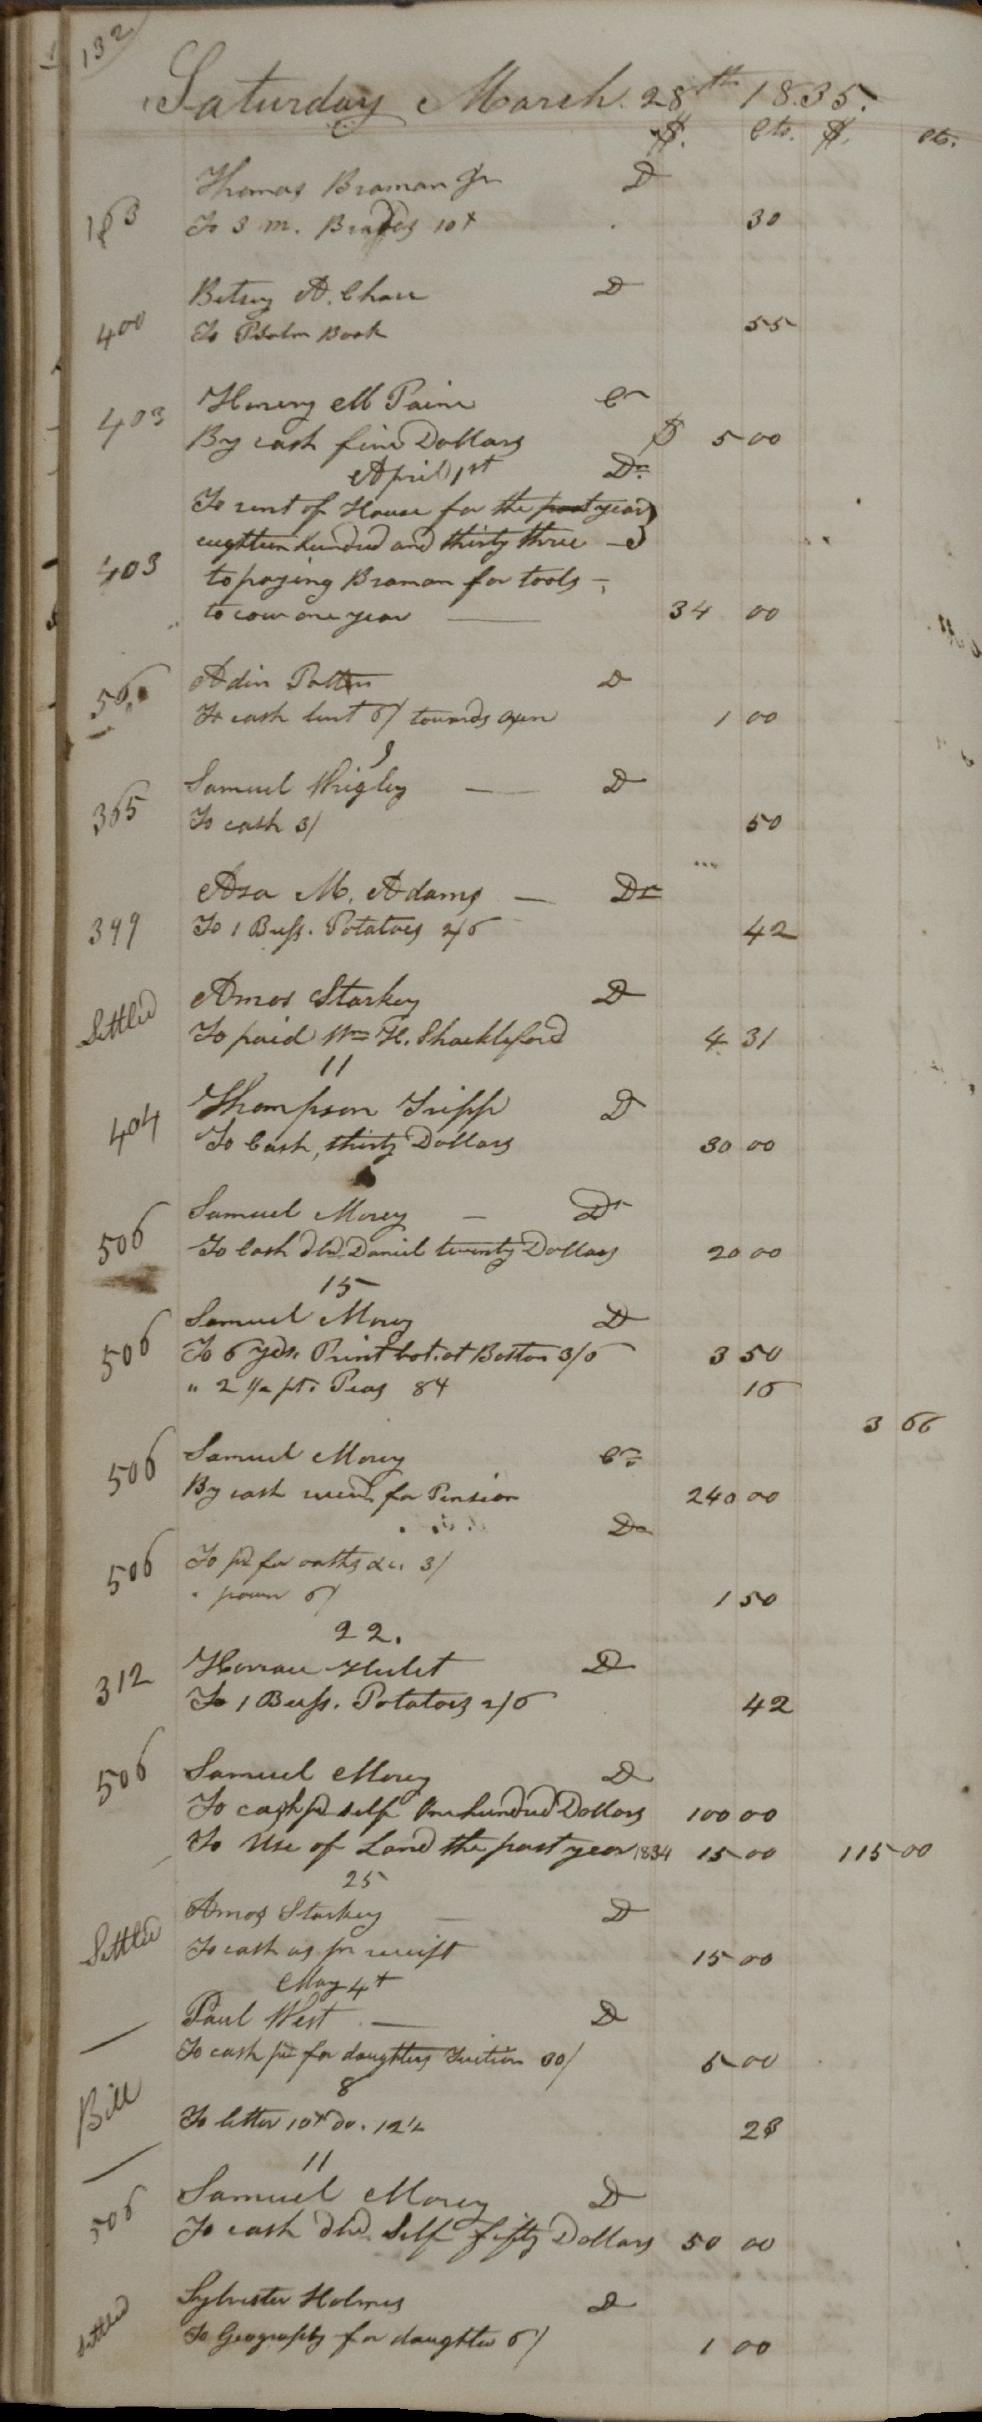 132
Saturday March. 28th 1835.
$. Cts. $. Cts.
Thomas Braman Jr D
163 To 3 m. Brads 10+ 30
Betsey A. Chace D
400 To Psalm Book 55
Henery M Paine Cr
403 By cash five Dollars $ 5 00
April 1st Dr.
To rent of House for the past year
eughteen hundred and thirty three
403 to paying Braman for tools
to cow one year 34 00
506 Adin Patten D
To cash lent 6/ towards oxen 1 00
9
Samuel Wrigley D
365 To cash 3/ 50
Asa M. Adams Dr
399 To 1 Bush. Potatoes 2/6 42
Settled Amos Starkey D
To paid Wm H. Shackleford 4 31
11
404 Thompson Tripp D
To Cash, thirty Dollars 30 00
Samuel Morey Dr
506 To Cash dld. Daniel twenty Dollars 20 00
15
Samuel Morey D
506 To 6 yds. Print bot. at Boston 3/6 3 50
" 2 1/2 pt. Peas 8+ 16
3 66
506 Samuel Morey Cr.
By cash recd. for Pension 240 00
Dr
506 To pd for oaths &c. 3/
" power 6/ 1 50
22.
312 Horrace Hulet D
To 1 Bush. Potatoes 2/6 42
506 Samuel Morey D
To cash pd self One hundred Dollars 100 00
To Use of Land the past year 1834 15 00 115 00
25
Settled Amos Starkey D
To cash as pr receipt 15 00
May 4+
Paul West D
To cash pd for daughters Tuition 30/ 5 00
8
Bill To letter 10+ do. 12 1/2 23
11
506 Samuel Morey D
To cash dld. Self fifty Dollars 50 00
Settled Sylvester Holmes D
To Geography for daughter 6/ 1 00